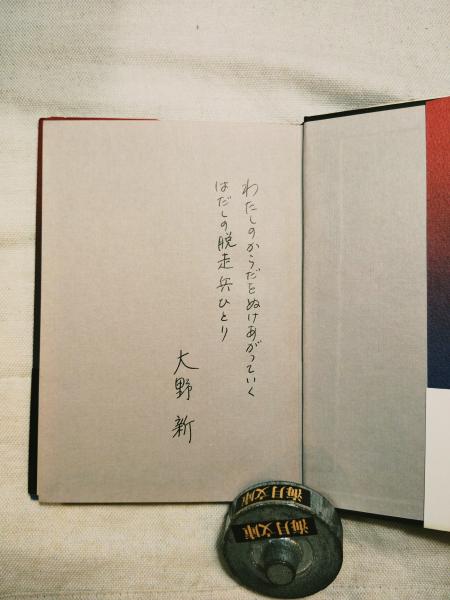 わたしのからだをぬけあがっていく
はだしの脱走兵ひとり
大野 新
海月文庫
海月文庫